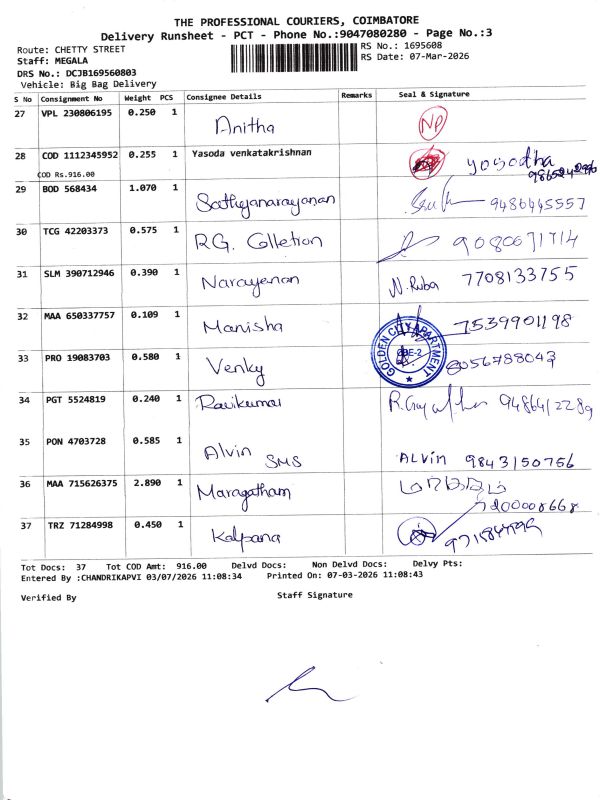 THE PROFESSIONAL COURIERS, COIMBATORE
Delivery Runsheet - PCT - Phone No.:9047080280 - Page No.:3
Route: CHETTY STREET
RS No.: 1695608
Staff: MEGALA
RS Date: 07-Mar-2026
DRS No.: DCJB169560803
Vehicle: Big Bag Delivery
S No Consignment No Weight PCS Consignee Details Remarks Seal & Signature
27 VPL 230806195 0.250 1 Anitha NP
28 COD 1112345952 0.255 1 Yasoda venkatakrishnan yosodha
COD Rs.916.00
29 BOD 568434 1.070 1 Sathyanarayanan 9486445557
30 TCG 42203373 0.575 1 R.G. Colletion 9080671714
31 SLM 390712946 0.390 1 Narayanan N. Ruba 7708133755
32 MAA 650337757 0.109 1 Manisha 7539901198
GOLDEN CITY APARTMENT
CBE-2
33 PRO 19083703 0.580 1 Venky 8056788043
34 PGT 5524819 0.240 1 Ravikumar
35 PON 4703728 0.585 1 Alvin SMS ALVin 9843150756
36 MAA 715626375 2.890 1 Maragatham மரகதம்
7200008668
37 TRZ 71284998 0.450 1 Kalpana
Tot Docs: 37 Tot COD Amt: 916.00 Delvd Docs: Non Delvd Docs: Delvy Pts:
Entered By :CHANDRIKAPVI 03/07/2026 11:08:34 Printed On: 07-03-2026 11:08:43
Verified By Staff Signature